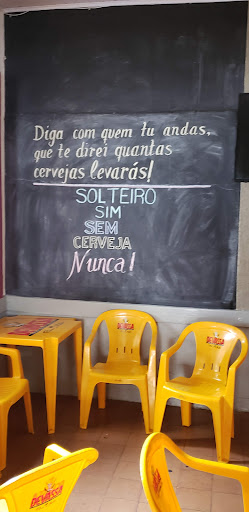 Diga com quem tu andas,
que te direi quantas
cervejas levarás!
SOLTEIRO
SIM
SEM
CERVEJA
Nunca!
DEVASSA
DEVASSA
DEVASSA